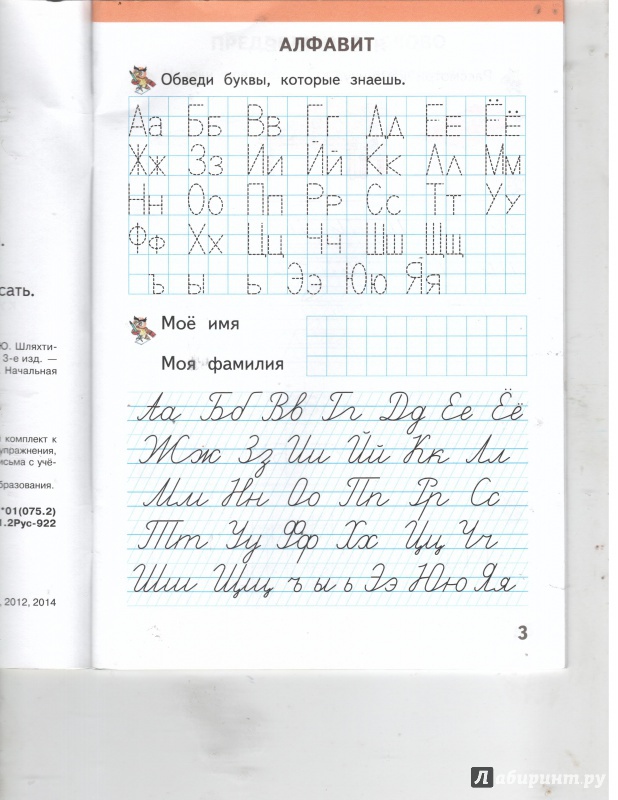 АЛФАВИТ
Обведи буквы, которые знаешь.
Аа Бб Вв Гг Дд Ее Ёё
Жж Зз Ии Йй Кк Лл Мм
Нн Оо Пп Рр Сс Тт Уу
Фф Хх Цц Чч Шш Щщ
ъ ы ь Ээ Юю Яя
Моё имя
Моя фамилия
Аа Бб Вв Гг Дд Ее Ёё
Жж Зз Ии Йй Кк Лл
Мм Нн Оо Пп Рр Сс
Тт Уу Фф Хх Цц Чч
Шш Щщ ъ ы ь Ээ Юю Яя
3
сать.
Ю. Шляхти-
3-е изд. —
Начальная
комплект к
упражнения,
исьма с учё-
бразования.
*01(075.2)
1.2Рус-922
, 2012, 2014
Лабиринт.ру